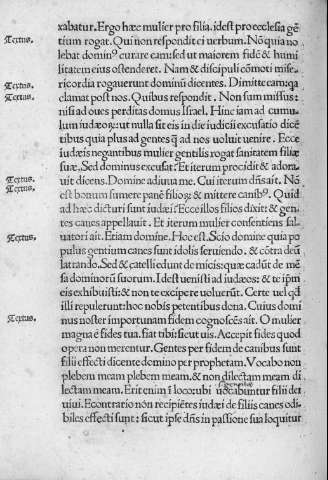 xabatur. Ergo hæc mulier pro filia. idest pro ecclesia gẽ
Textus. tium rogat. Qui non respondit ei uerbum. Nõ quia no
lebat domin⁹ curare eam sed ut maiorem fidẽ & humi
litatem eius ostenderet. Nam & discipuli cõmoti mise,
Textus. ricordia rogauerunt dominũ dicentes. Dimitte eam q̃a
Textus. clamat post nos. Quibus respondit. Non sum missus:
nisi ad oues perditas domus Israel. Hinc iam ad cumu,
lum iudæoꝝ: ut nulla sit eis in die iudicii excusatio dicẽ
tibus quia plus ad gentes q̃ ad nos uoluit uenire. Ecce
iudæis negantibus mulier gentilis rogat sanitatem filiæ
suæ. Sed dominus excusat. Et iterum procidit & ador,
Textus. uit dicens. Domine adiuua me. Cui iterum dñs ait. Nõ
Textus. est bonum sumere panẽ filioꝝ & mittere canib⁹. Quid
ad hæc dicturi sunt iudæi: Ecce illos filios dixit: & gen,
tes canes appellauit. Et iterum mulier consentiens sal,
Textus. uatori ait. Etiam domine. Hoc est. Scio domine quia po
pulus gentium canes sunt idolis seruiendo. & cõtra deũ
latrando. Sed & catelli edunt de micis: quæ cadũt de mẽ
sa dominorũ suorum. Idest uenisti ad iudæos: & te ipm̃
eis exhibuisti: & non te excipere uoluerũt. Certe uel qđ
illi repulerunt: hoc nobis petentibus dona. Cuius domi
Textus. nus noster importunam fidem cognoscẽs ait. O mulier
magna ẽ fides tua. fiat tibi: sicut uis. Accepit fides quod
opera non merentur. Gentes per fidem de canibus sunt
filii effecti dicente domino per prophetam. Vocabo non
plebem meam plebem meam. & non dilectam meam di
lectam meam. Erit enim i loco: ubi uocabuntur filii dei
uiui. Econtrario nõn recipiẽtes iudæi de filiis canes odi
biles effecti sunt: sicut ipse dñs in passione sua loquitur